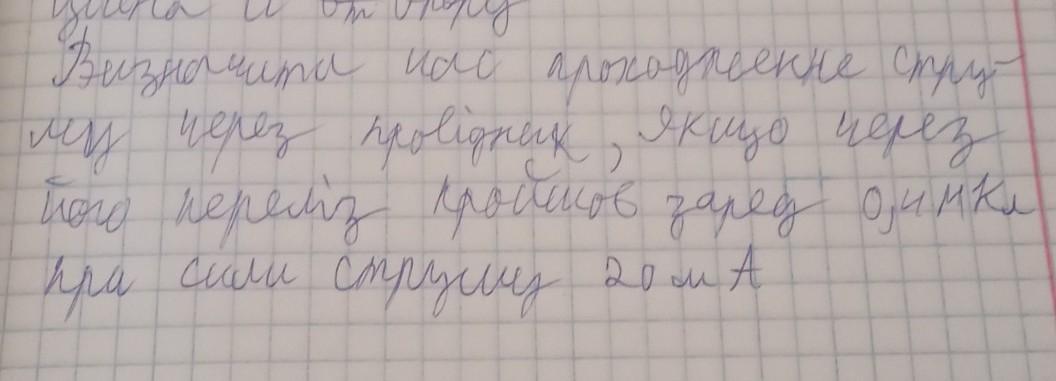 Визначити час проходженне стру-
му через провідник, якщо через
його переліз пройшов заред 0,4 мКл
при сили струму 20 мА